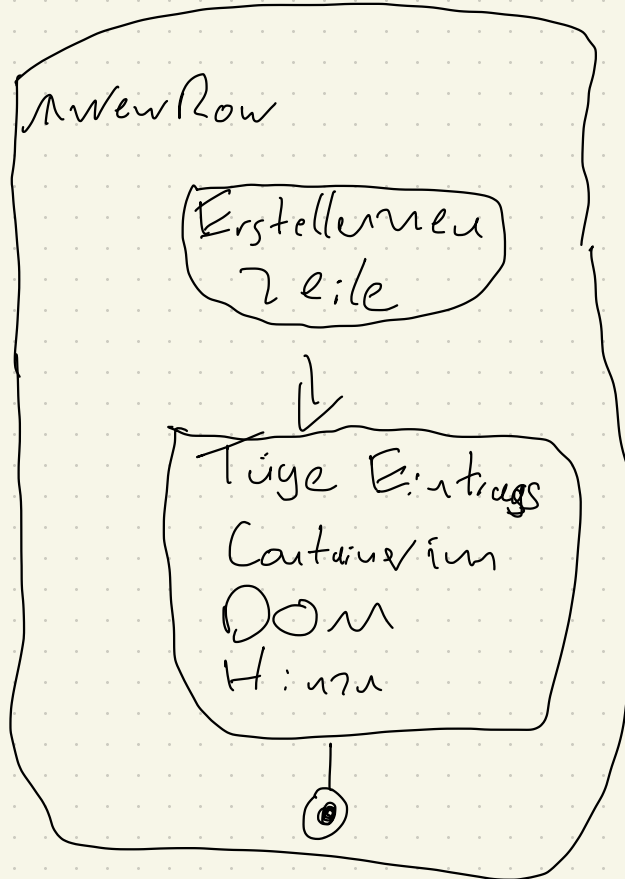 NewRow
Erstellen neu
Zeile
Füge Eintrags
Container im
DOM
Hinzu